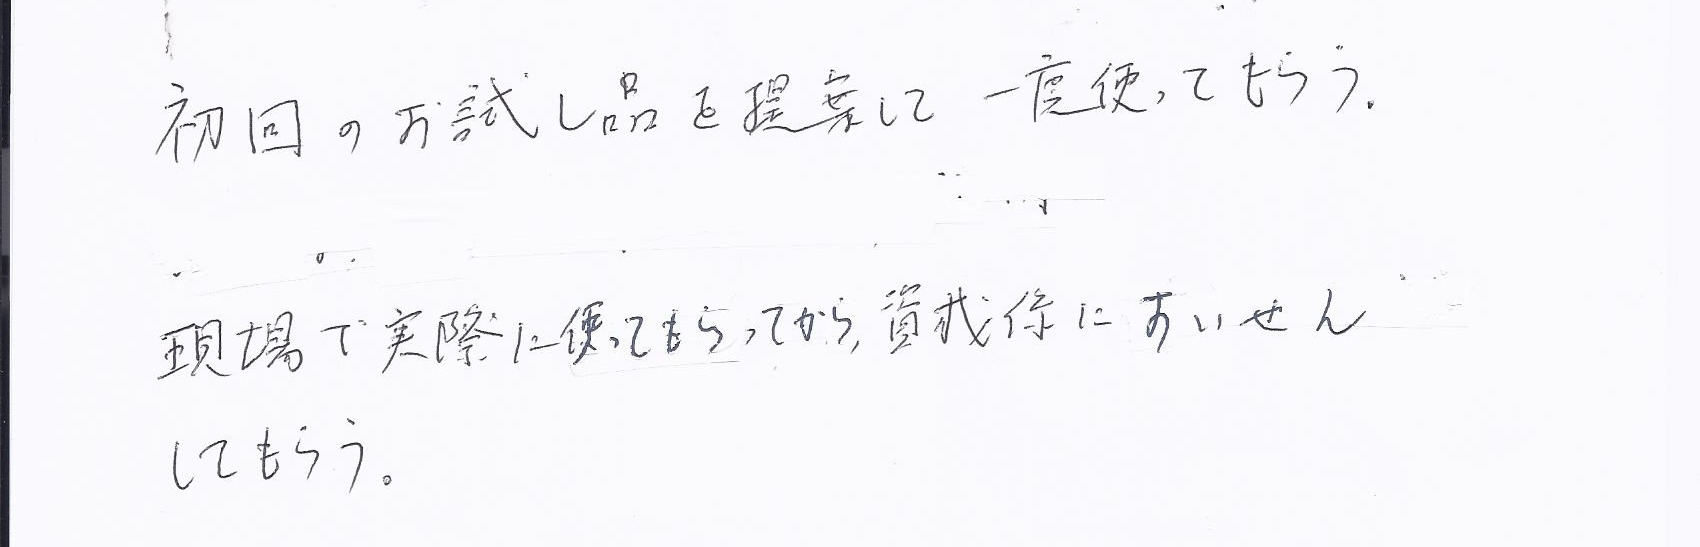 初回のお試し品を提案して一度使ってもらう.
現場で実際に使ってもらってから,資材係にすいせん
してもらう。